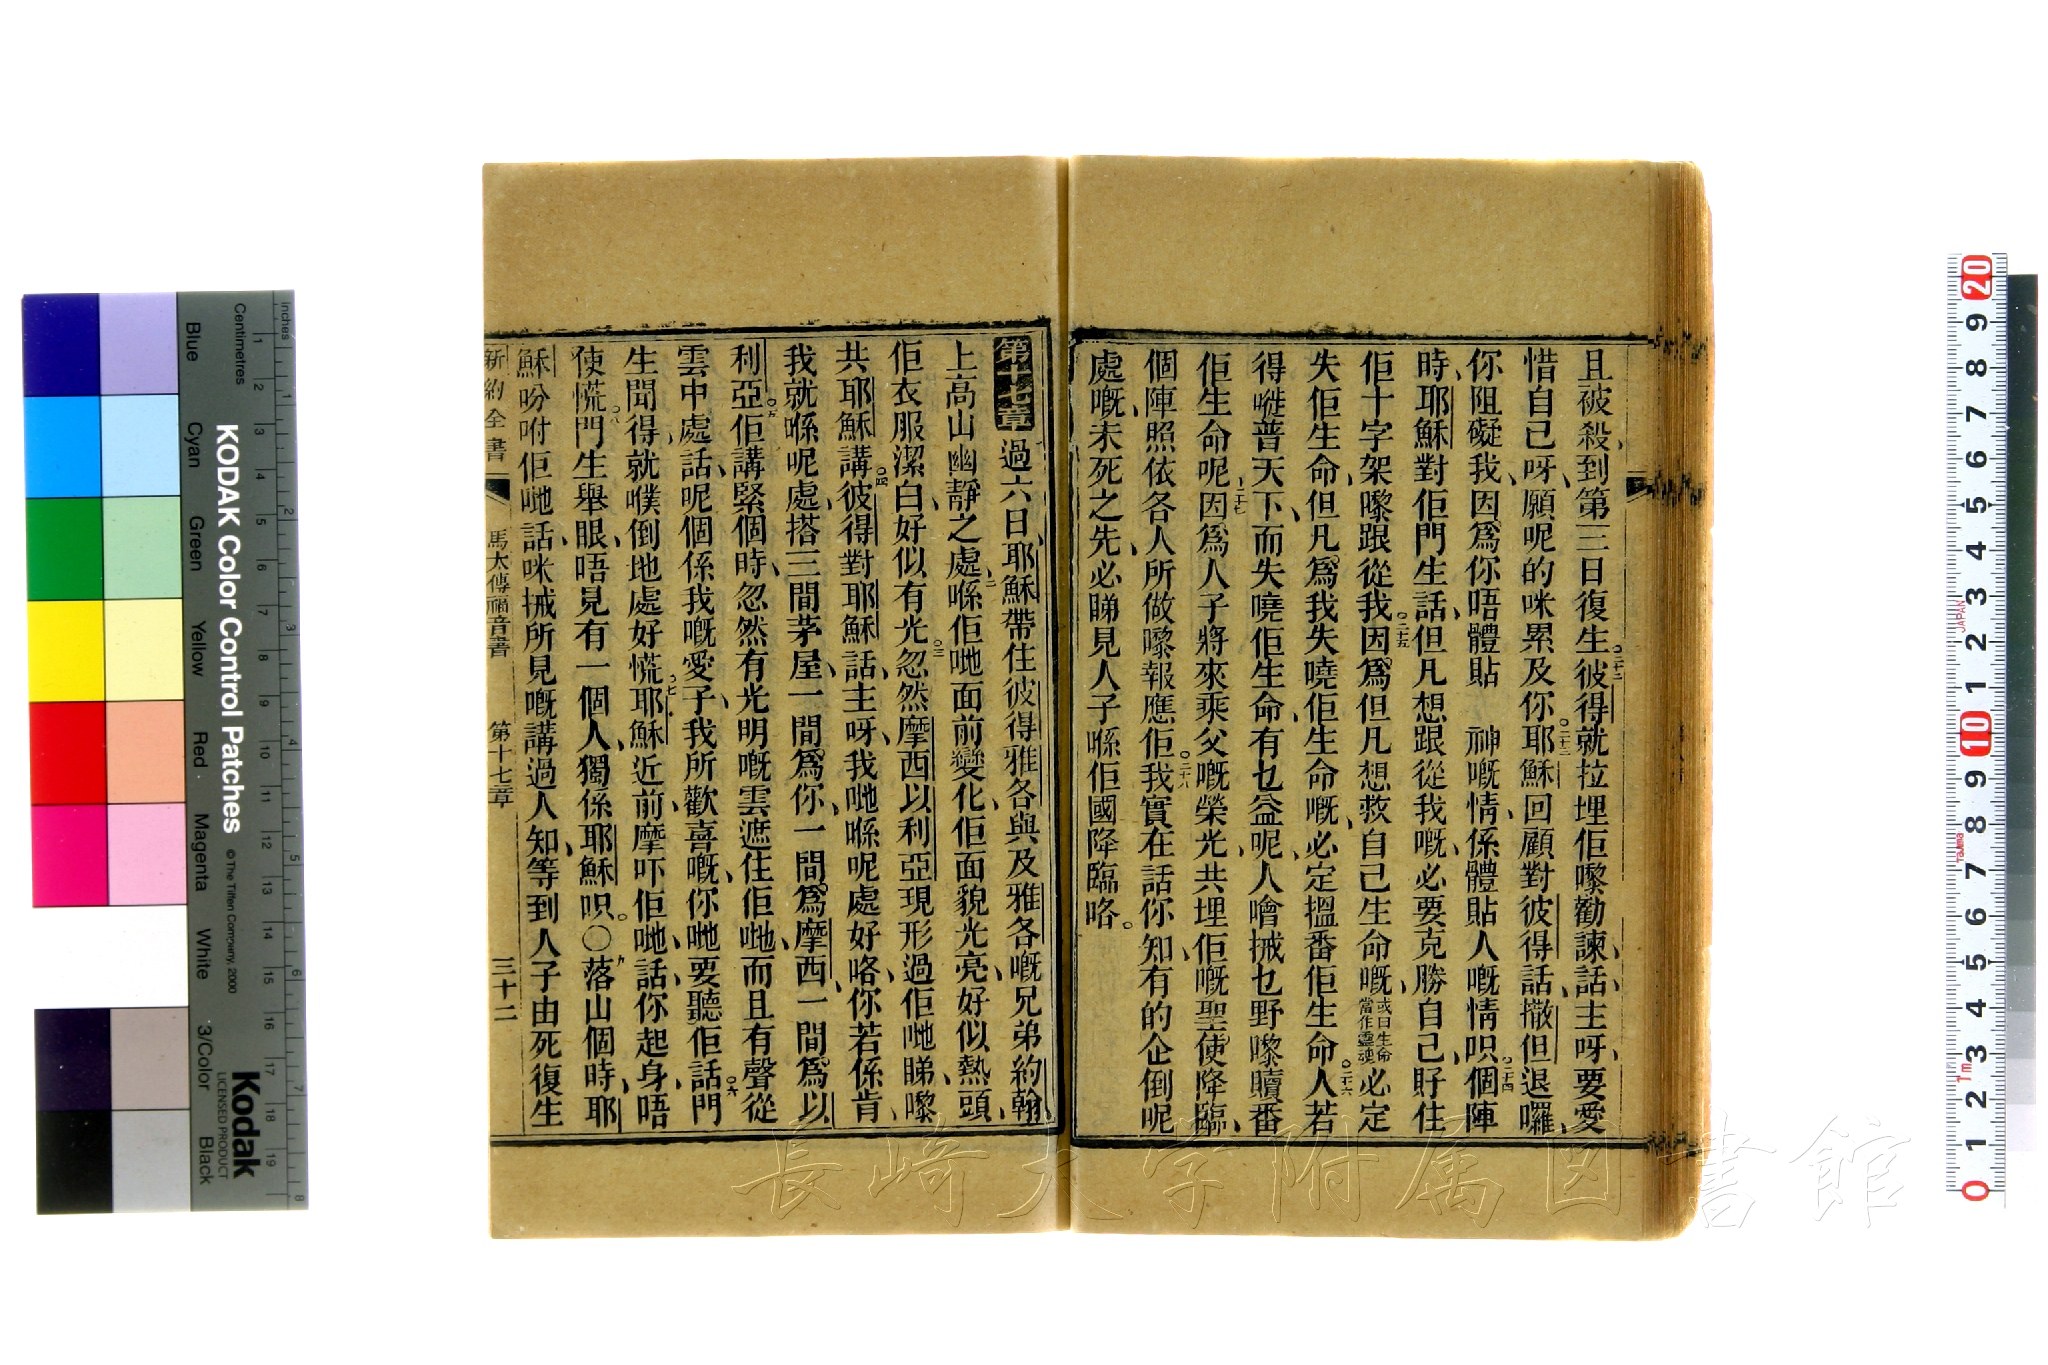 且被殺、到第三日復生。二十二彼得就拉埋佢嚟勸諫、話、主呀、要愛
惜自己呀、願呢的咪累及你。二十三耶穌回顧對彼得話、撒但退囉、
你阻礙我、因爲你唔體貼　神嘅情、係體貼人嘅情呮。二十四個陣
時、耶穌對佢門生話、但凡想跟從我嘅、必要克勝自己、孖住
佢十字架嚟跟從我。二十五因爲但凡想救自己生命嘅、或曰生命當作靈魂必定
失佢生命、但凡爲我失嘵佢生命嘅、必定搵番佢生命。二十六人若
得嘥普天下、而失嘵佢生命、有乜益呢、人噲搣乜野嚟贖番
佢生命呢。二十七因爲人子將來乘父嘅榮光、共埋佢嘅聖使降臨、
個陣照依各人所做嚟報應佢。二十八我實在話你知、有的企倒呢
處嘅、未死之先、必睇見人子喺佢國降臨咯。
第十七章 過六日、耶穌帶住彼得雅各與及雅各嘅兄弟約翰、
上高山幽靜之處、二喺佢哋面前變化、佢面貌光亮、好似熱頭、
佢衣服潔白、好似有光。三忽然摩西以利亞現形過佢哋睇、嚟
共耶穌講。四彼得對耶穌話、主呀、我哋喺呢處好咯、你若係肯、
我就喺呢處、搭三間茅屋、一間爲你、一間爲摩西、一間爲以
利亞。五佢講緊個時、忽然有光明嘅雲遮住佢哋、而且有聲從
雲中處話、呢個係我嘅愛子、我所歡喜嘅、你哋要聽佢話。六門
生聞得、就噗倒地處好慌。七耶穌近前、摩吓佢哋、話、你起身、唔
使慌。八門生舉眼、唔見有一個人、獨係耶穌呮。○九落山個時、耶
穌吩咐佢哋話、咪搣所見嘅講過人知、等到人子由死復生
新約全書 馬太傳福音書 第十七章 三十二
KODAK Color Control Patches
© The Tiffen Company, 2000
Kodak
LICENSED PRODUCT
Centimetres
Inches
Blue Cyan Green Yellow Red Magenta White 3/Color Black
1 2 3 4 5 6 7 8 9 10 11 12 13 14 15 16 17 18 19
1 2 3 4 5 6 7 8
20 9 8 7 6 5 4 3 2 1 10 9 8 7 6 5 4 3 2 1 0
JAPAN
TAJIMA
1m
長崎大学附属図書館